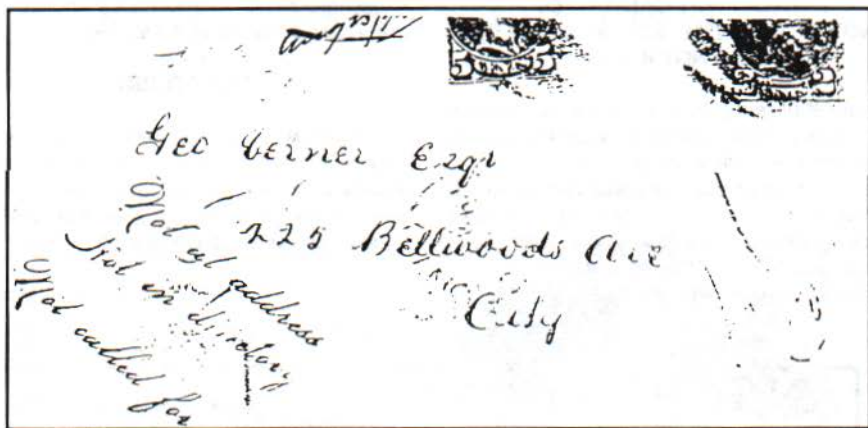 Geo Verner Esqr
225 Bellwoods Ave
City
Not at address
Not in directory
Not called for